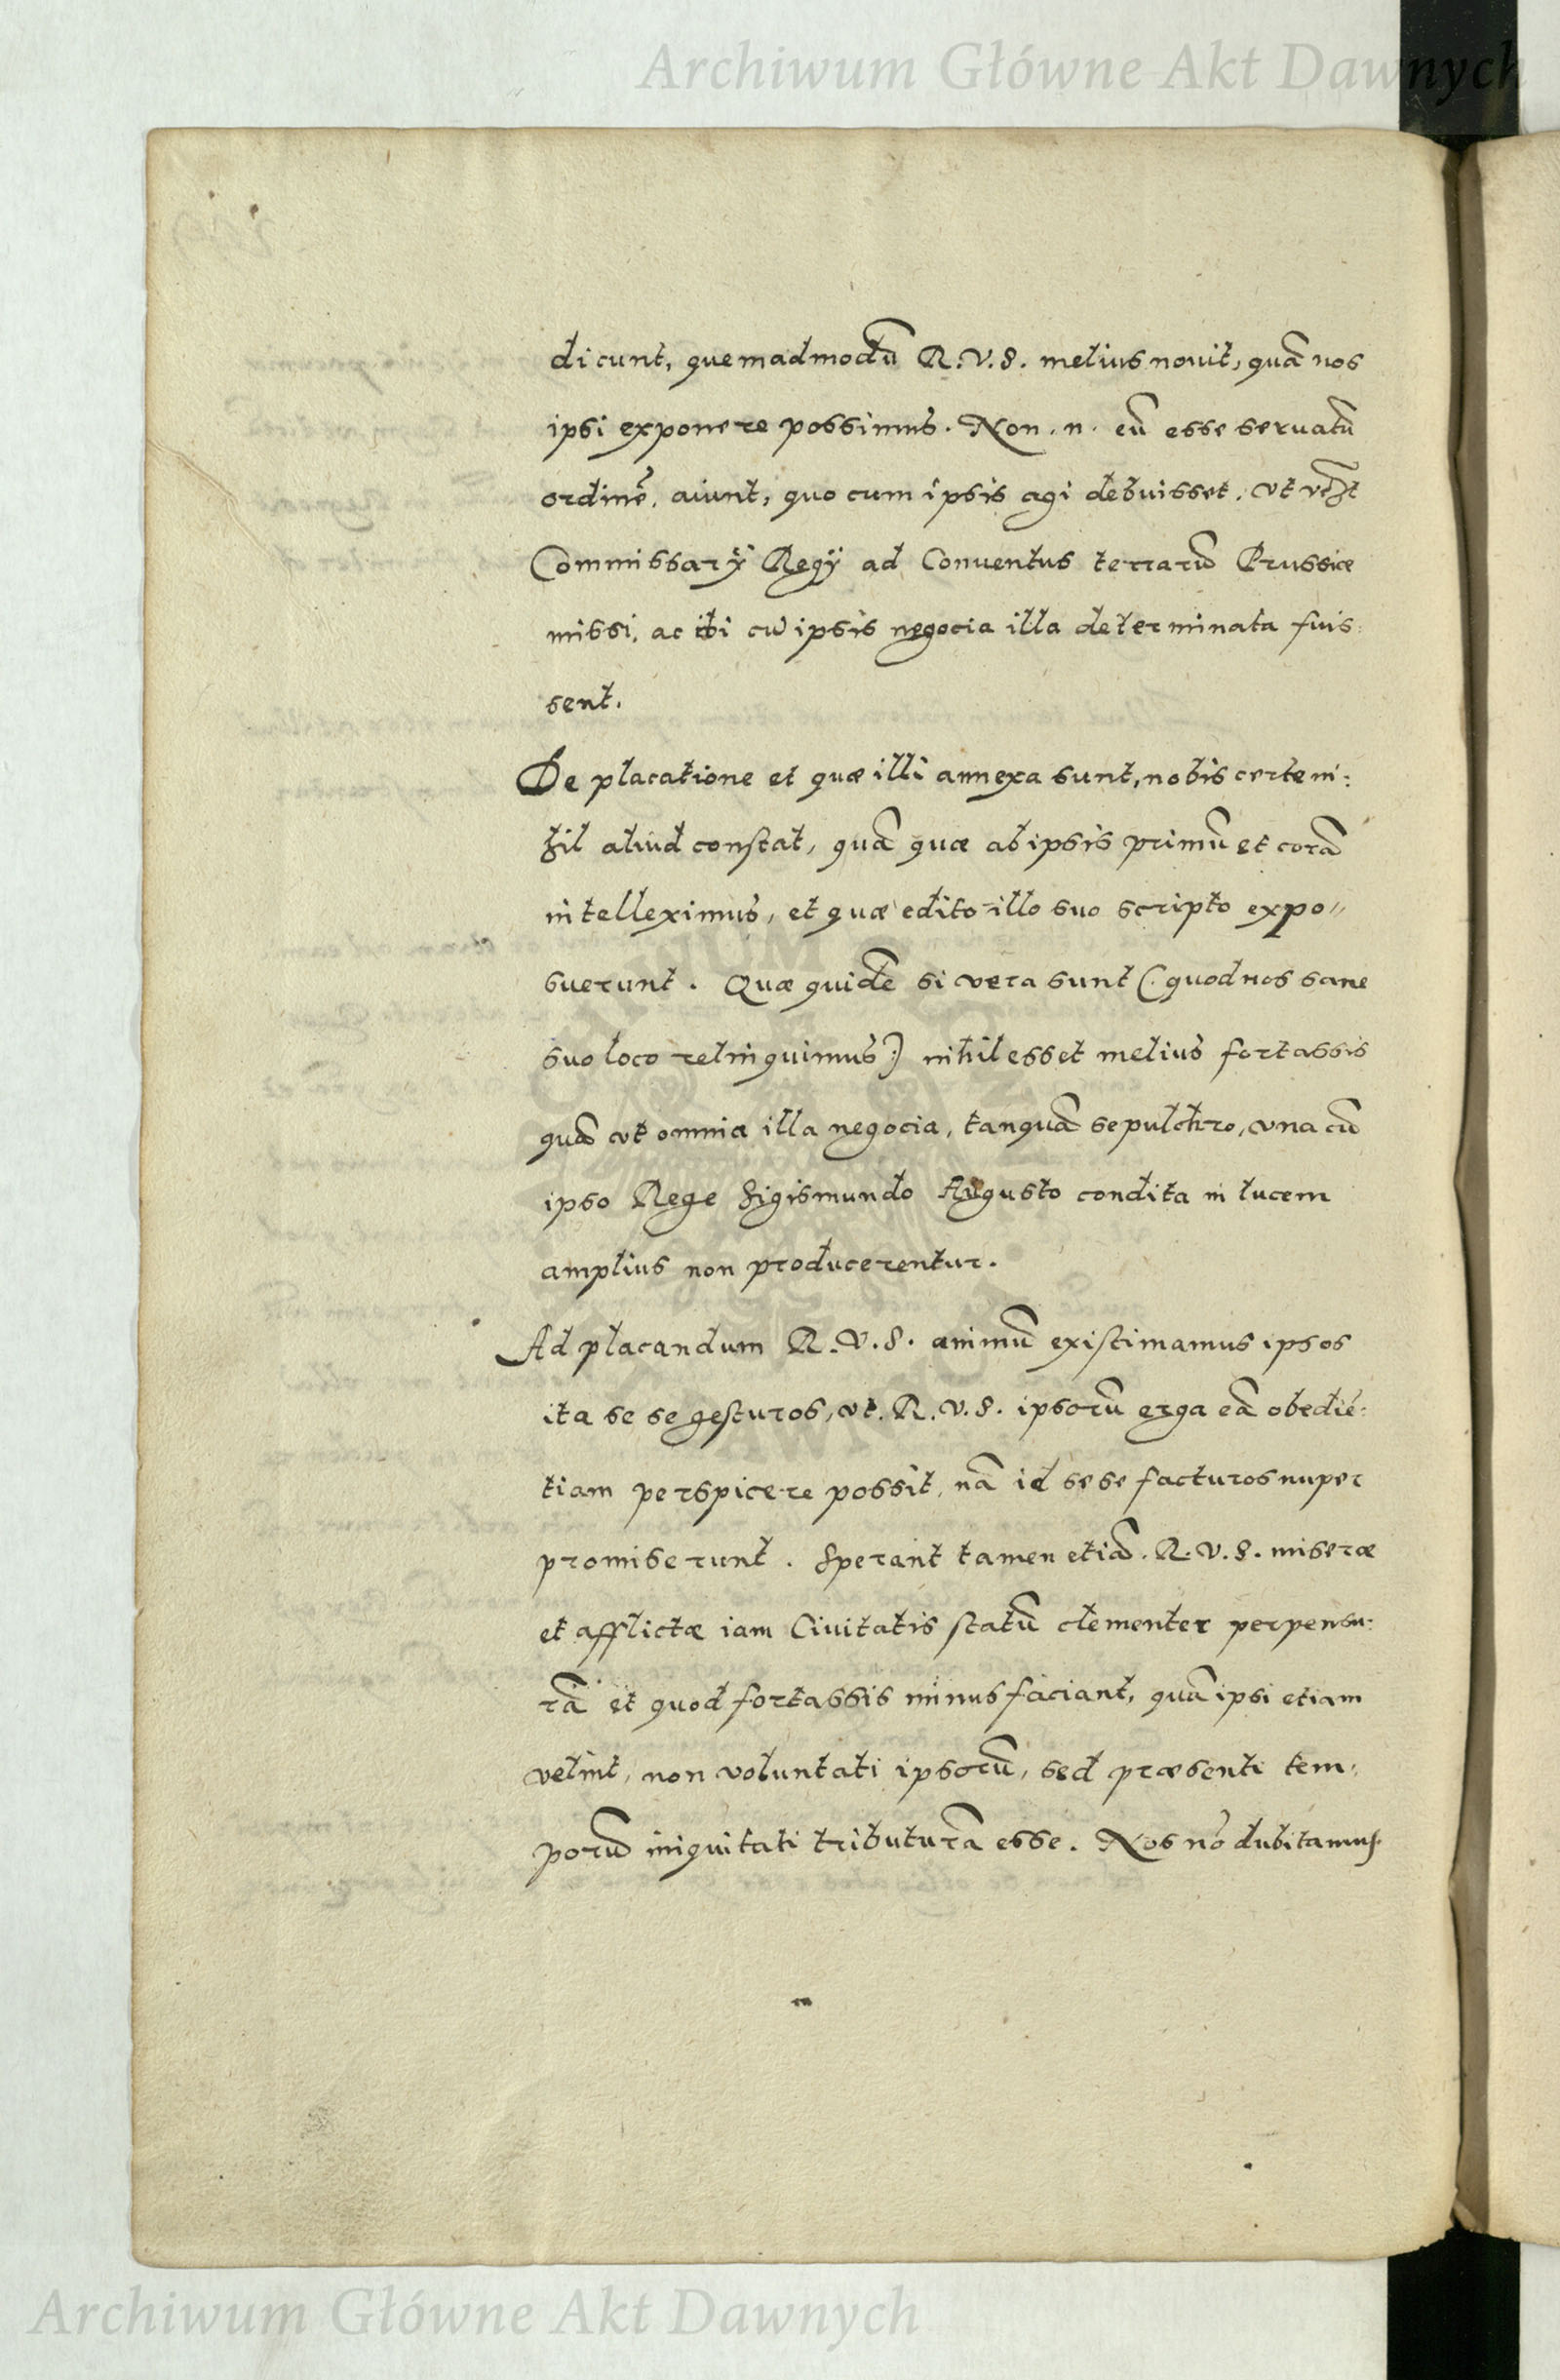 Archiwum Główne Akt Dawnych
dicunt, quemadmodū R. V. S. melius nouit, quā nos
ipsi exponere possimus. Non .n. eū esse seruatū
ordinē, aiunt, quo cum ipsis agi debuisset. vt
Commissarÿ Regÿ ad Conuentus terrarū Prussiæ
missi, ac ibi cū ipsis negocia illa determinata fuis:
sent.
De placatione et quæ illi annexa sunt, nobis certe ni:
hil aliud constat, quā quæ ab ipsis primū et corā
intelleximus, et quæ edito illo suo scripto expo„
suerunt. Quæ quidē si vera sunt (: quod nos sane
suo loco relinquimus :) nihil esset melius fortassis
quā vt omnia illa negocia, tanquā sepulchro, vna cū
ipso Rege Sigismundo Augusto condita in lucem
amplius non producerentur.
Ad placandum R. V. S. animū existimamus ipsos
ita se se gesturos, vt. R. V. S. ipsorū erga eā obediē:
tiam perspicere possit, nā id sese facturos nuper
promiserunt. Sperant tamen etiā. R. V. S. miseræ
et afflictæ iam Ciuitatis statū clementer perpensu:
rā et quod fortassis minus faciant, quā ipsi etiam
velint, non voluntati ipsorū, sed præsenti tem:
porū iniquitati tributurā esse. Nos nō dubitamus
ARCHIWUM GŁÓWNE AKT DAWNYCH
Archiwum Główne Akt Dawnych